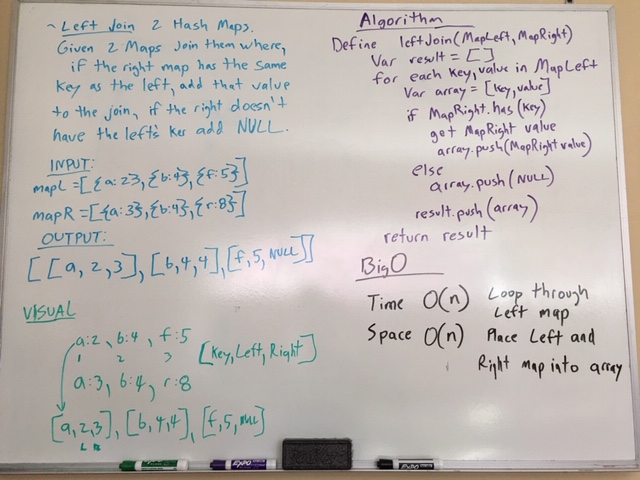 ~ Left Join 2 Hash Maps.
Given 2 Maps Join them where,
if the right map has the same
Key as the left, add that value
to the join, if the right doesn't
have the left's Key add NULL.
INPUT:
mapL = [{a:2}, {b:4}, {f:5}]
mapR = [{a:3}, {b:4}, {r:8}]
OUTPUT:
[[a, 2, 3], [b, 4, 4], [f, 5, NULL]]
VISUAL
a:2, b:4, f:5
1 2 3
[Key, Left, Right]
a:3, b:4, r:8
[a, 2, 3], [b, 4, 4], [f, 5, NULL]
L R
Algorithm
Define leftJoin(MapLeft, MapRight)
Var result = []
for each Key, value in MapLeft
Var array = [Key, value]
if MapRight.has(Key)
get MapRight value
array.push(MapRight value)
else
array.push(NULL)
result.push(array)
return result
Big O
Time O(n) Loop through
Left map
Space O(n) Place Left and
Right map into array
EXPO
EXPO